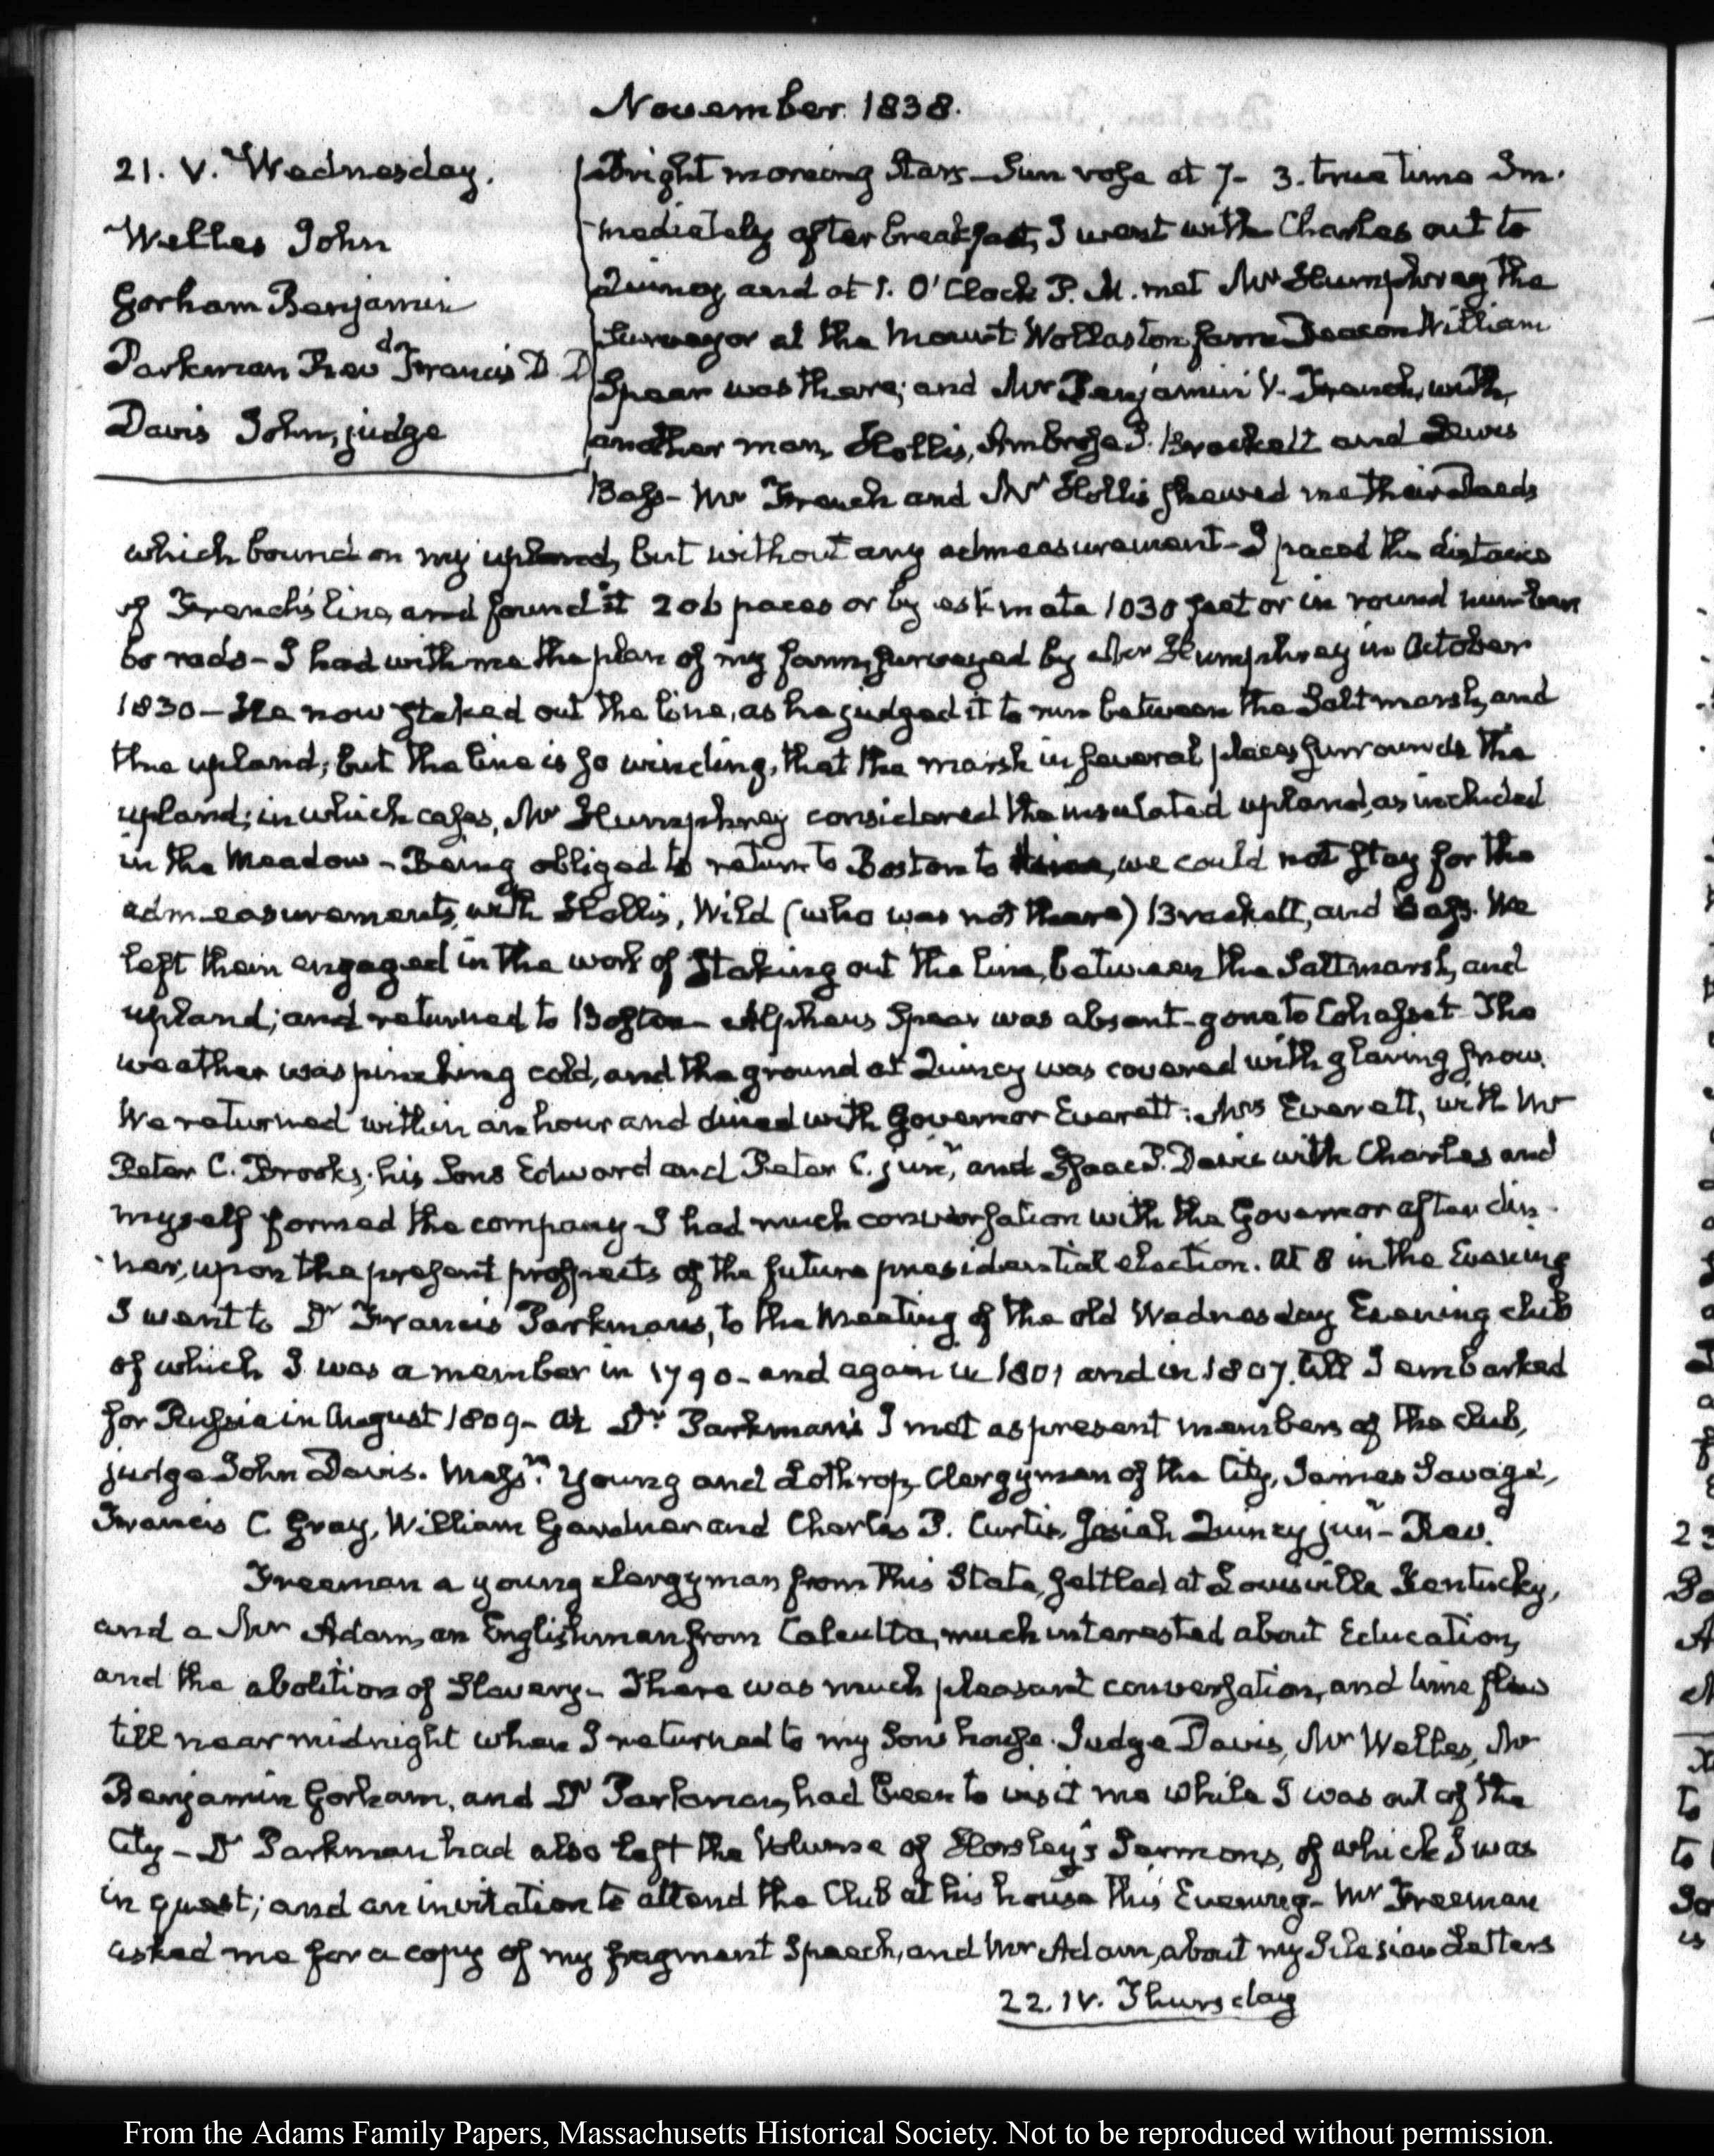 November 1838.
21. V. Wednesday.
Welles John
Gorham Benjamin
Parkman Rev.d Dr Francis D. D
Davis John, judge
Bright morning Stars—Sun rose at 7– 3. true time Im-
mediately after breakfast, I went with Charles out to
Quincy and at 1. O'Clock P. M. met Mr Humphrey the
Surveyor at the Mount Wollaston farm Deacon William
Spear was there; and Mr Benjamin V. French, with
another man, Hollis, Ambrose P. Brackett and Lewis
Bass— Mr French and Mr Hollis shewed me their Deeds
which bound on my upland, but without any admeasurement—I paced the distance
of French's line, and found it 206 paces or by estimate 1030 feet or in round numbers
60 rods— I had with me the plan of my farm, surveyed by Mr Humphrey in October
1830— He now staked out the line, as he judged it to run between the Salt marsh, and
the upland; but the line is so winding, that the marsh in several places surrounds the
upland; in which cases, Mr Humphrey considered the insulated upland, as included
in the Meadow— Being obliged to return to Boston to dine, we could not stay for the
admeasurements, with Hollis, Wild (who was not there) Brackett, and Bass. We
left them engaged in the work of staking out the line, between the Salt marsh, and
upland; and returned to Boston— Alpheus Spear was absent— gone to Cohasset— The
weather was pinching cold, and the ground at Quincy was covered with glaring snow.
We returned within an hour and dined with Governor Everett: Mrs Everett, with Mr
Peter C. Brooks, his Sons Edward and Peter C. junr, and Isaac P. Davis with Charles and
myself formed the company— I had much conversation with the Governor after din-
ner, upon the present prospects of the future presidential election. At 8 in the Evening
I went to Dr Francis Parkman's, to the Meeting of the old Wednesday Evening club
of which I was a member in 1790— and again in 1801 and in 1807. till I embarked
for Russia in August 1809— At Dr Parkman's I met as present members of the club,
judge John Davis. Messrs. Young and Lothrop, Clergymen of the City, James Savage,
Francis C. Gray, William Gardner and Charles P. Curtis, Josiah Quincy junr— Revd.
Freeman a young clergyman from this State, settled at Louisville Kentucky,
and a Mr Adam, an Englishman from Calcutta, much interested about Education,
and the abolition of Slavery— There was much pleasant conversation, and time flew
till near midnight when I returned to my Son's house. Judge Davis, Mr Welles, Mr
Benjamin Gorham, and Dr Parkman, had been to visit me while I was out of the
City— Dr Parkman had also left the Volume of Horsley's Sermons, of which I was
in quest; and an invitation to attend the Club at his house this Evening— Mr Freeman
asked me for a copy of my fragment Speech, and Mr Adam, about my Silesian Letters
22. IV. Thursday
From the Adams Family Papers, Massachusetts Historical Society. Not to be reproduced without permission.